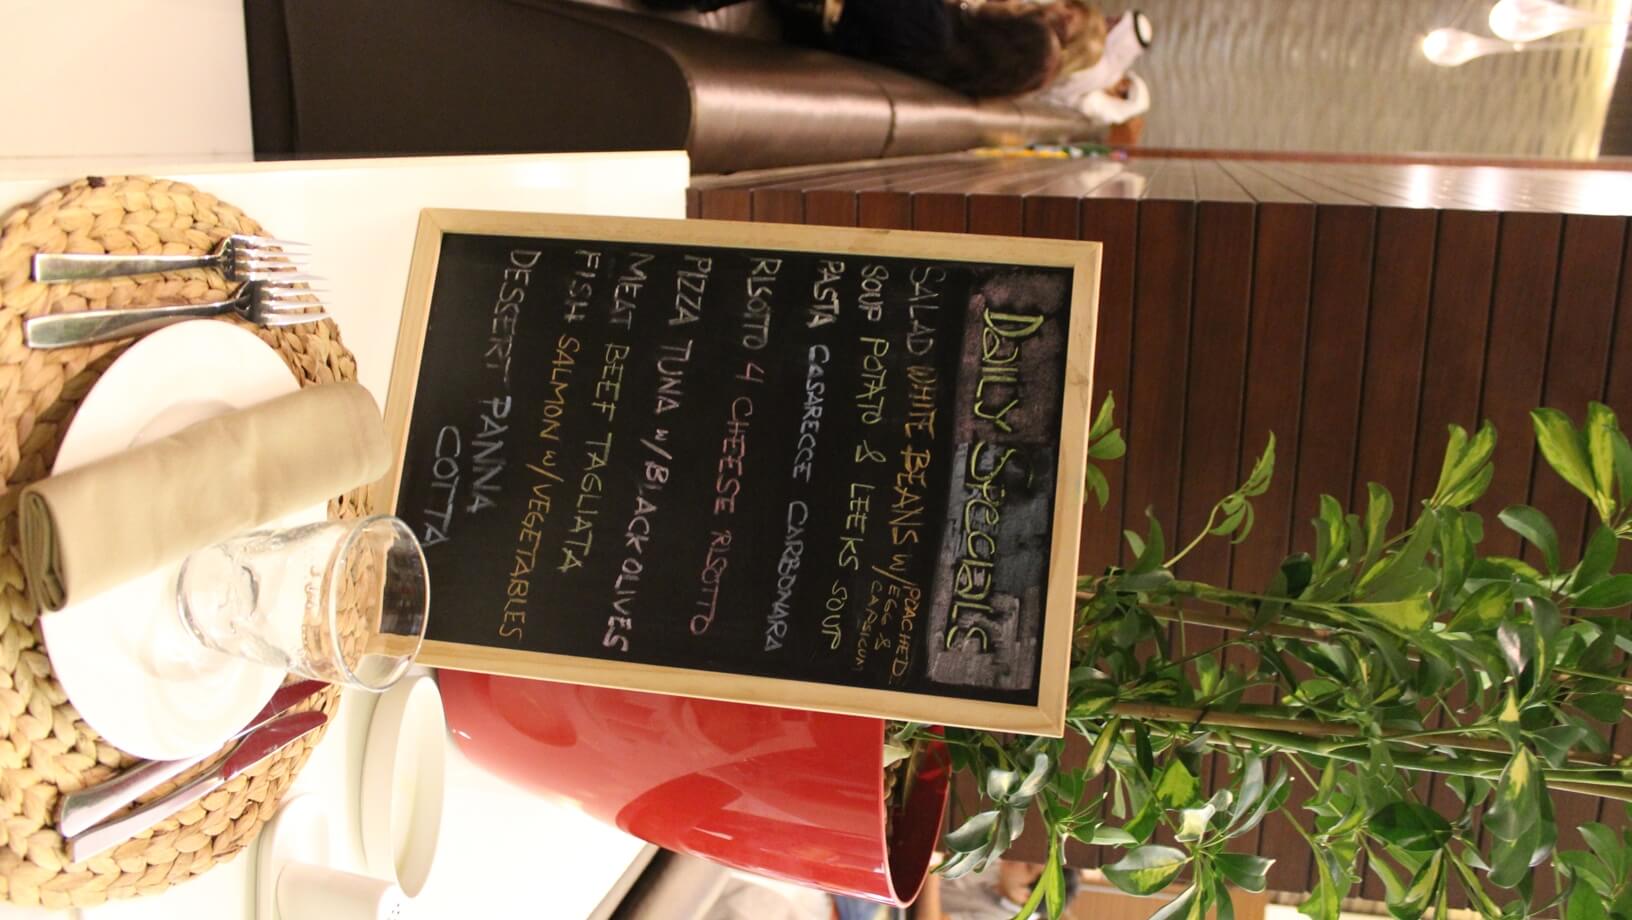 DaiLY SPECiaLS
SALAD WHITE BEANS w/POACHED
EGG &
CAPSICUM
SOUP POTATO & LEEKS SOUP
PASTA CASARECCE CARBONARA
RISOTTO 4 CHEESE RISOTTO
PIZZA TUNA w/BLACK OLIVES
MEAT BEEF TAGLIATA
FISH SALMON w/VEGETABLES
DESSERT PANNA
COTTA